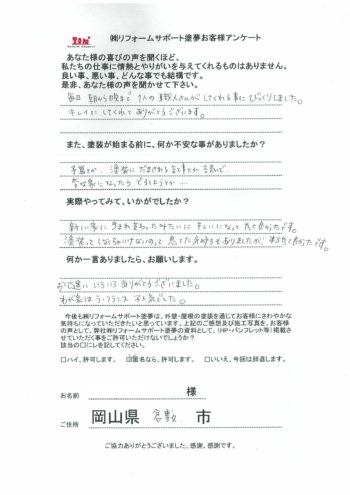 ㈱リフォームサポート塗夢お客様アンケート
あなた様の喜びの声を聞くほど、
私たちの仕事に情熱とやりがいを与えてくれるものはありません。
良い事、悪い事、どんな事でも結構です。
是非、あなた様の声をお聞かせ下さい。
毎日 朝から晩まで 1人の職人さんがしてくれる事にびっくりしました。
キレイにしてくれてありがとうございます。
また、塗装が始まる前に、何か不安な事がありましたか?
塗装に だまされる
変な家になったら どうしようとか....
実際やってみて、いかがでしたか?
新しい家に生まれ変わったみたいに キレイになって 良かったです。
塗装って しなくちゃいけないのって 思てた 気持ちもありましたが、 良かったです。
何か一言ありましたら、お願いします。
いろいろ ありがとうございました。
わが家は ラ・フランス 大人気でした。
今後も㈱リフォームサポート塗夢は、外壁・屋根の塗装を通じてお客様にさわやかな
気持ちになっていただきたいと思っています。上記のご感想及び施工写真を、お客様
の声として、弊社㈱リフォームサポート塗夢の資料として、(HP・パンフレット等)掲載さ
せていただく事をご許可いただけないでしょうか?
該当の□にレを記してください。
□ハイ、許可します。 ☑匿名なら、許可します。 □いいえ、今回は辞退します。
お名前 様
ご住所 岡山県 倉敷 市
ご協力ありがとうございました。感謝、感謝です。